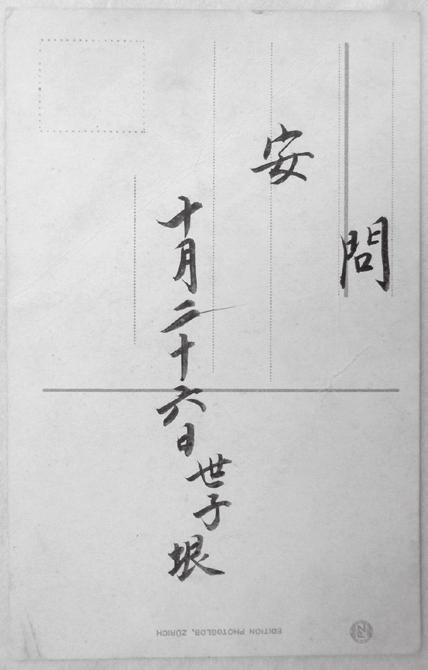 問
安
十月二十六日
世子垠
EDITION PHOTOGLOB, ZÜRICH